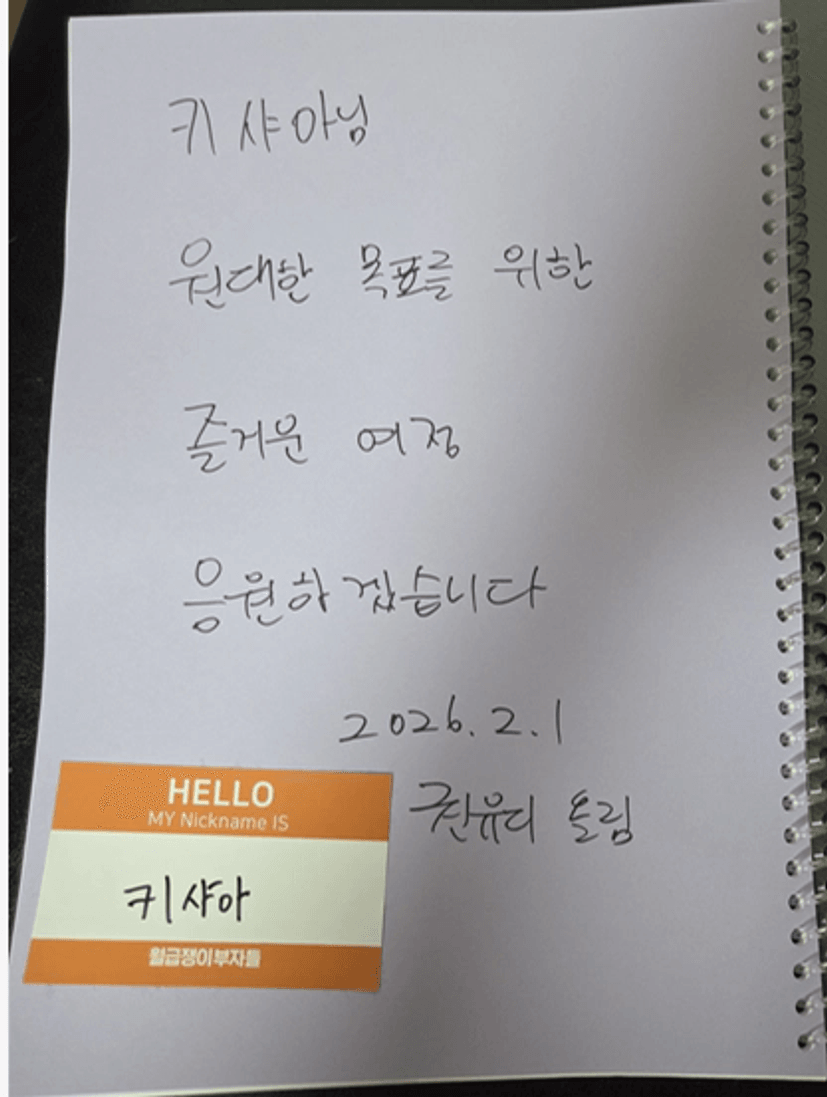 키샤아님
원대한 목표를 위한
즐거운 여정
응원하겠습니다
2026.2.1
권유디 드림
HELLO
MY Nickname IS
키샤아
월급쟁이부자들